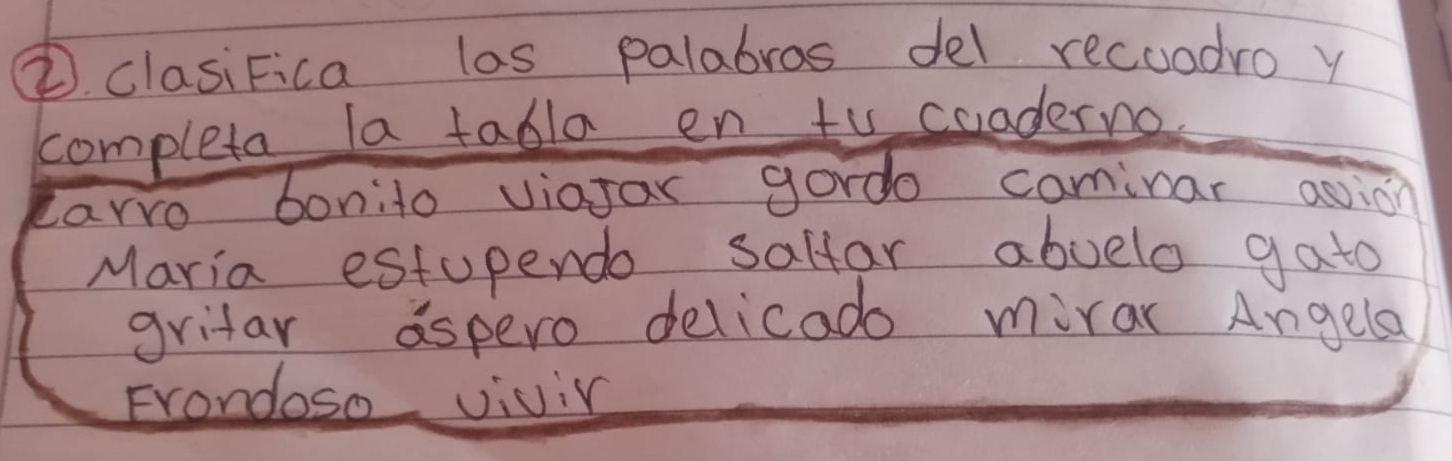 2. clasifica las palabras del recuadro y
completa la tabla en tu cuaderno.
carro bonito viajar gordo caminar avión
María estupendo saltar abuelo gato
gritar áspero delicado mirar Angela
Frondoso vivir